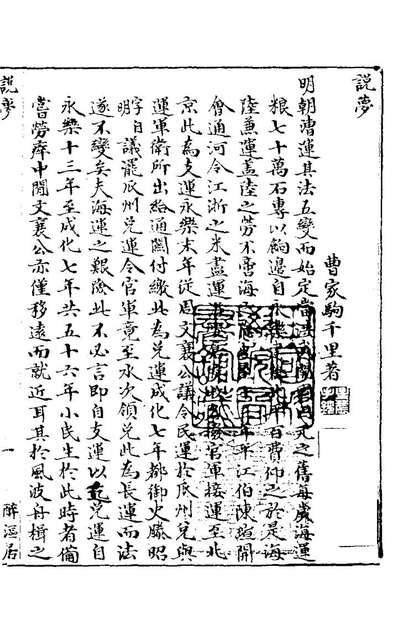 説夢
曹家駒千里著
明朝漕運其法五變而始定當洪武
之舊每歲海運
粮七十萬石專以餉邊自永
百費仰之於是海
陸兼運葢陸之勞不啻海
年平江伯陳瑄開
會通河令江浙之米盡運
官軍接運至北
京此為支運永樂末年從周文襄公議令民運於瓜州兌與
運軍衛所出給通關付繳此為兌運成化七年都御史滕昭
議罷瓜州兌運令官軍竟至水次領兌此為長運而法
遂不變矣夫海運之艱險此不必言即自支運以兌運自
永樂十三年至成化七年共五十六年小民生於此時者備
嘗勞瘁中間文襄公亦僅移遠而就近耳其於風波舟楫之
説夢
一
醉漚居